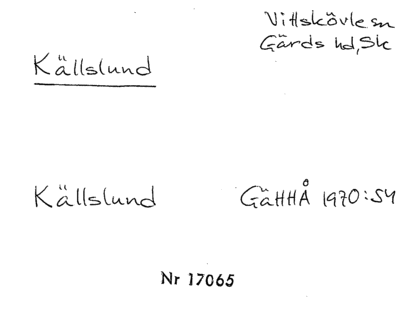 Vittskövle sn
Gärds hd, Sk
Källslund
Källslund GäHHÅ 1970:54
Nr 17065